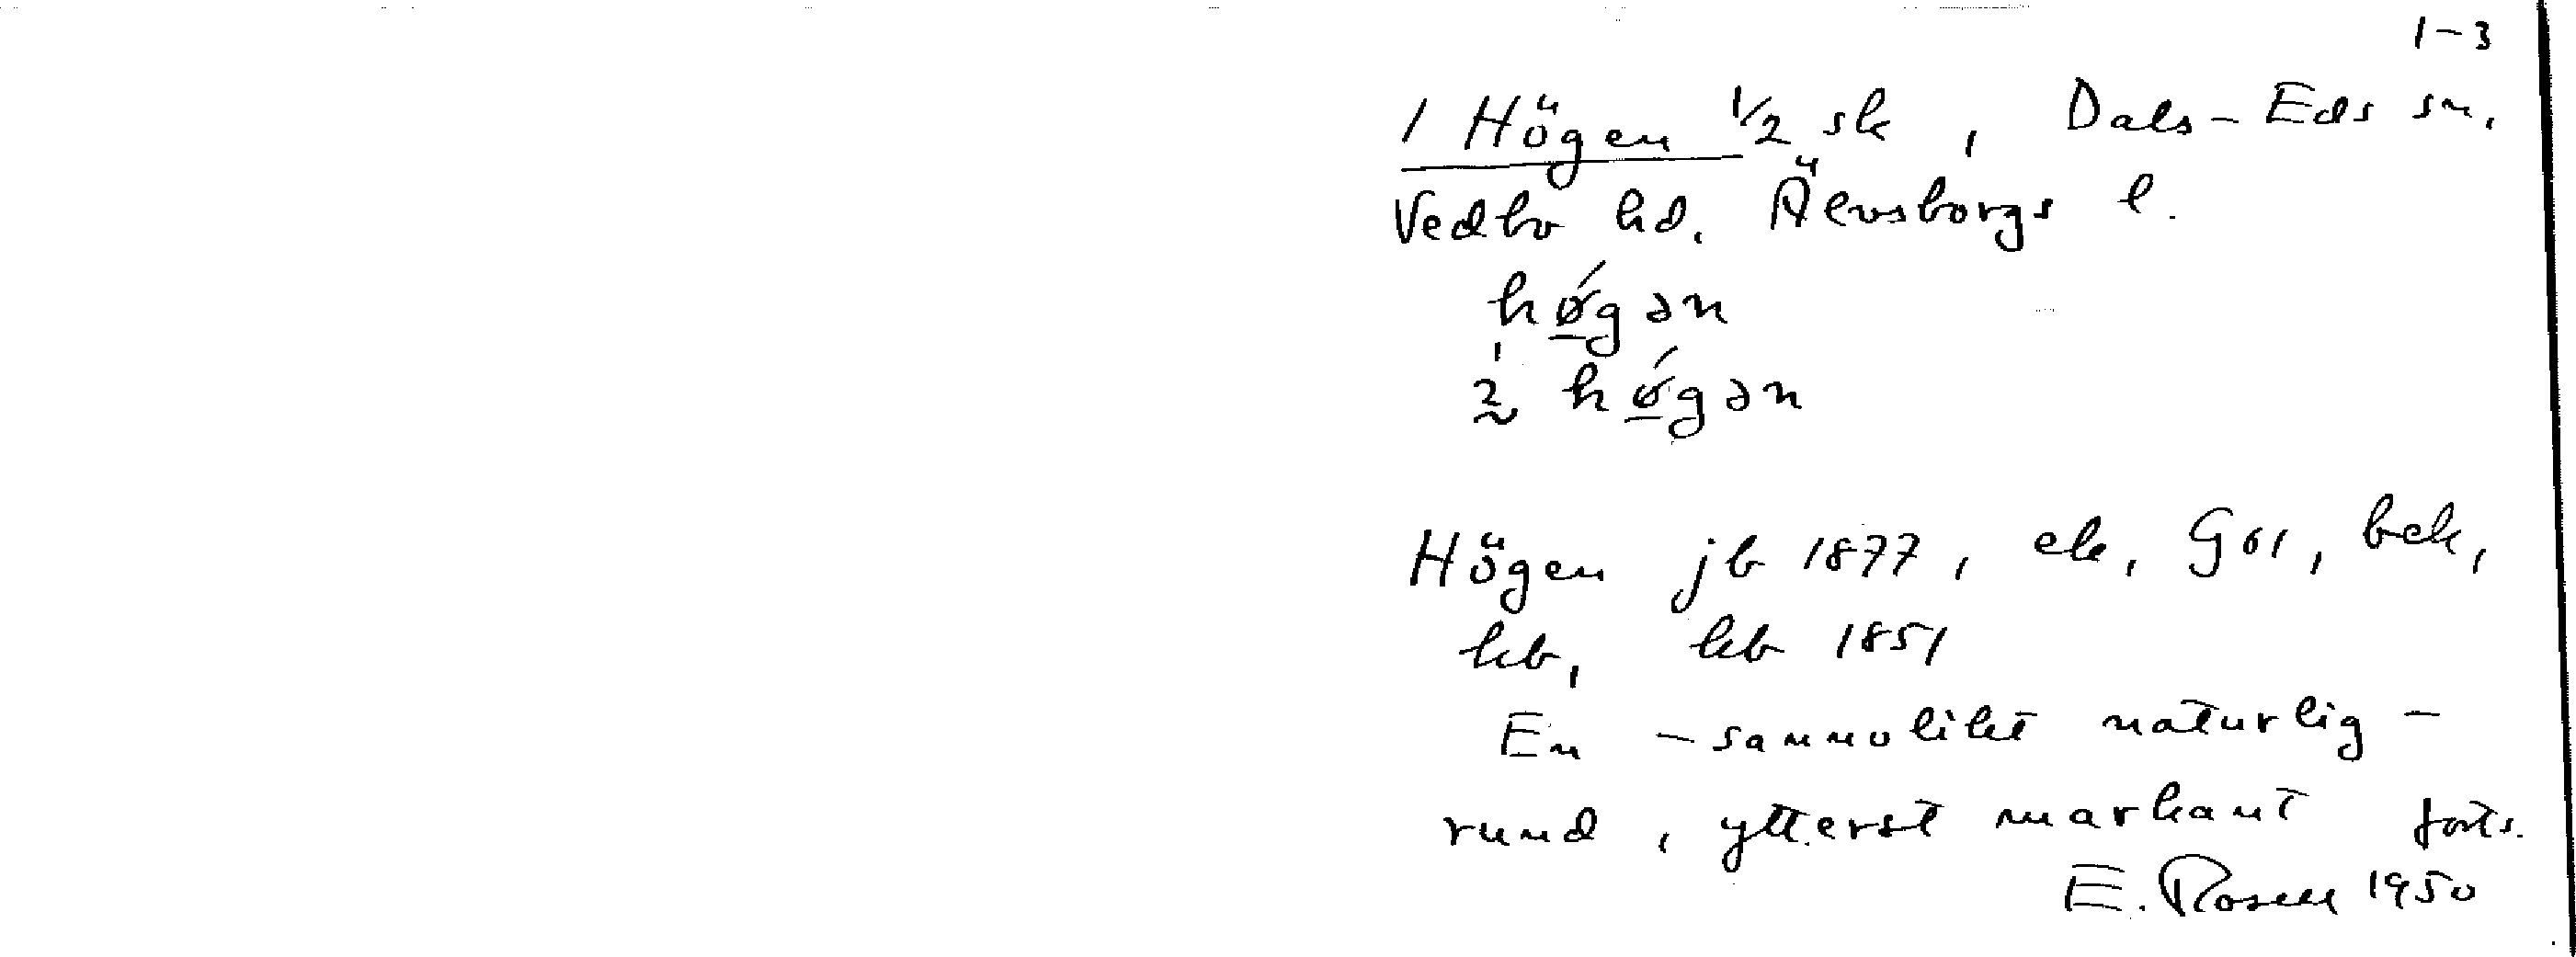 1-3
1 Högen 1/2 sk, Dals-Eds sn,
Vedbo hd. Älvsborgs l.
hǿ̱gən
hǿ̱gən
Högen jb 1877, ek, G01, bek,
kb, kb 1851
En - sannolikt naturlig -
rund, ytterst markant forts.
E. Rosell 1950